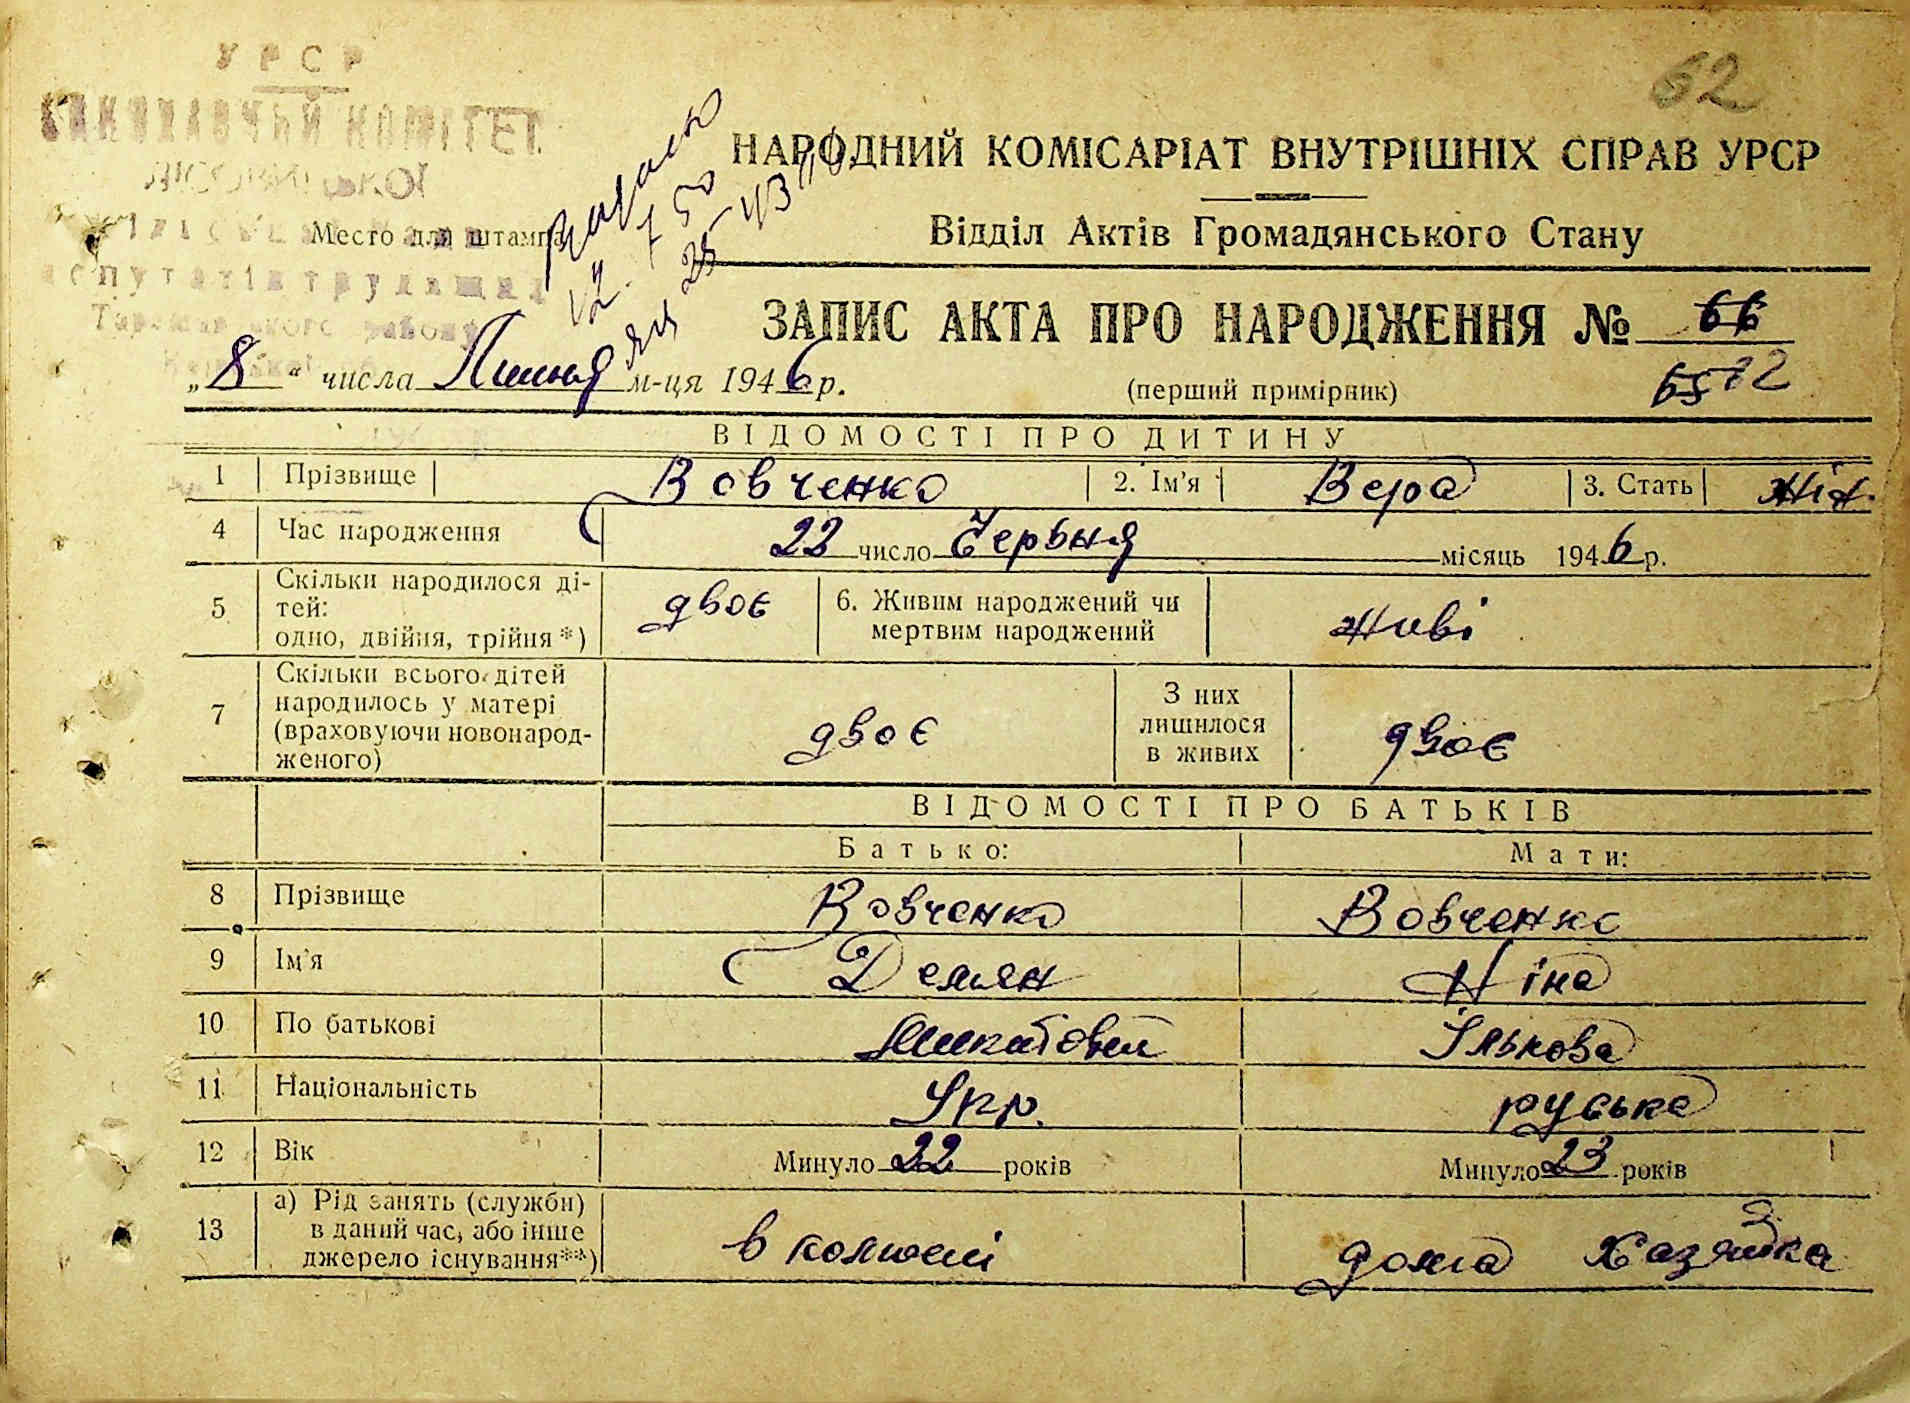 УРСР
62
ВИКОНАВЧИЙ КОМІТЕТ
НАРОДНИЙ КОМІСАРІАТ ВНУТРІШНІХ СПРАВ УРСР
Место для штампа
Відділ Актів Громадянського Стану
депутатів трудящих
району
ЗАПИС АКТА ПРО НАРОДЖЕННЯ № 66
„ 8 “ числа Липня м-ця 1946 р.
(перший примірник)
ВІДОМОСТІ ПРО ДИТИНУ
1 Прізвище Вовченко 2. Ім'я Вера 3. Стать жін.
4 Час народження 22 число Червня місяць 1946 р.
5 Скільки народилося ді-
тей:
одно, двійня, трійня*) двоє 6. Живим народжений чи
мертвим народжений живі
7 Скільки всього дітей
народилось у матері
(враховуючи новонарод-
женого) двоє З них
лишилося
в живих двоє
ВІДОМОСТІ ПРО БАТЬКІВ
Батько: Мати:
8 Прізвище Вовченко Вовченко
9 Ім'я Демян Ніна
10 По батькові Ількова
11 Національність Укр. руська
12 Вік Минуло 22 років Минуло 23 років
13 а) Рід занять (служби)
в даний час, або інше
джерело існування**) в дома хазяйка